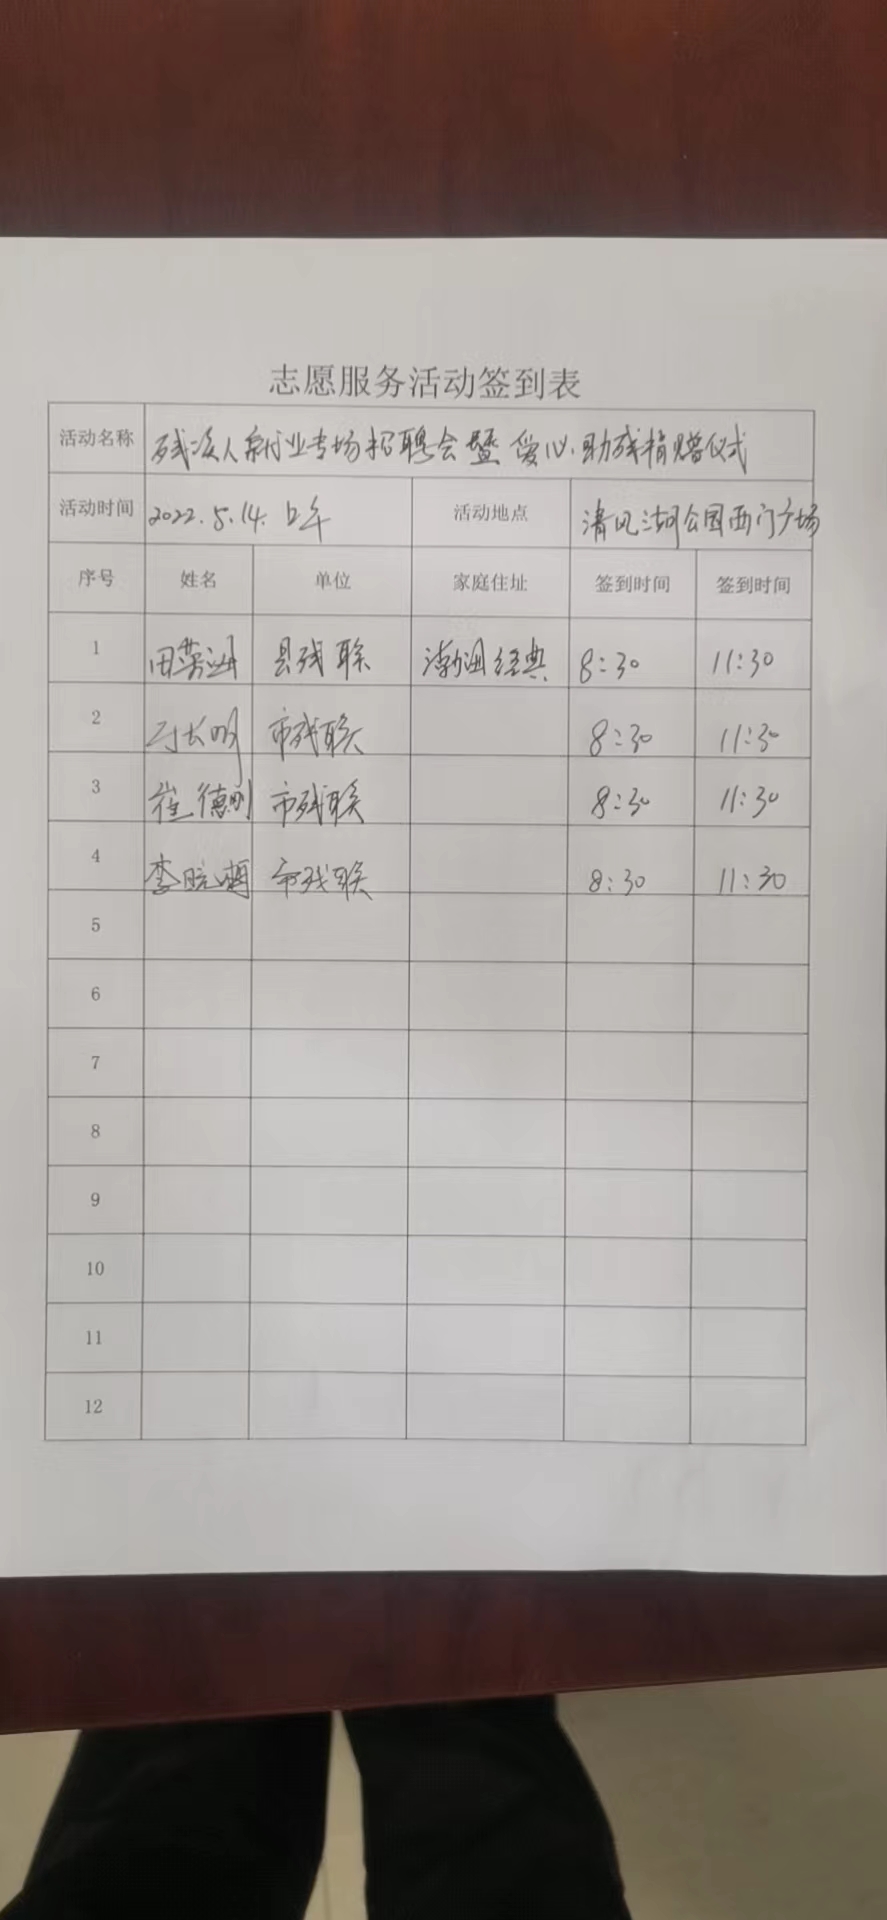 志愿服务活动签到表
活动名称 残疾人就业专场招聘会暨爱心助残捐赠仪式
活动时间 2022.5.14. 上午 活动地点 清风湖公园西门广场
序号 姓名 单位 家庭住址 签到时间 签到时间
1 田 县残联 渤海经典 8:30 11:30
2 长明 市残联 8:30 11:30
3 崔德刚 市残联 8:30 11:30
4 李晓 市残联 8:30 11:30
5
6
7
8
9
10
11
12